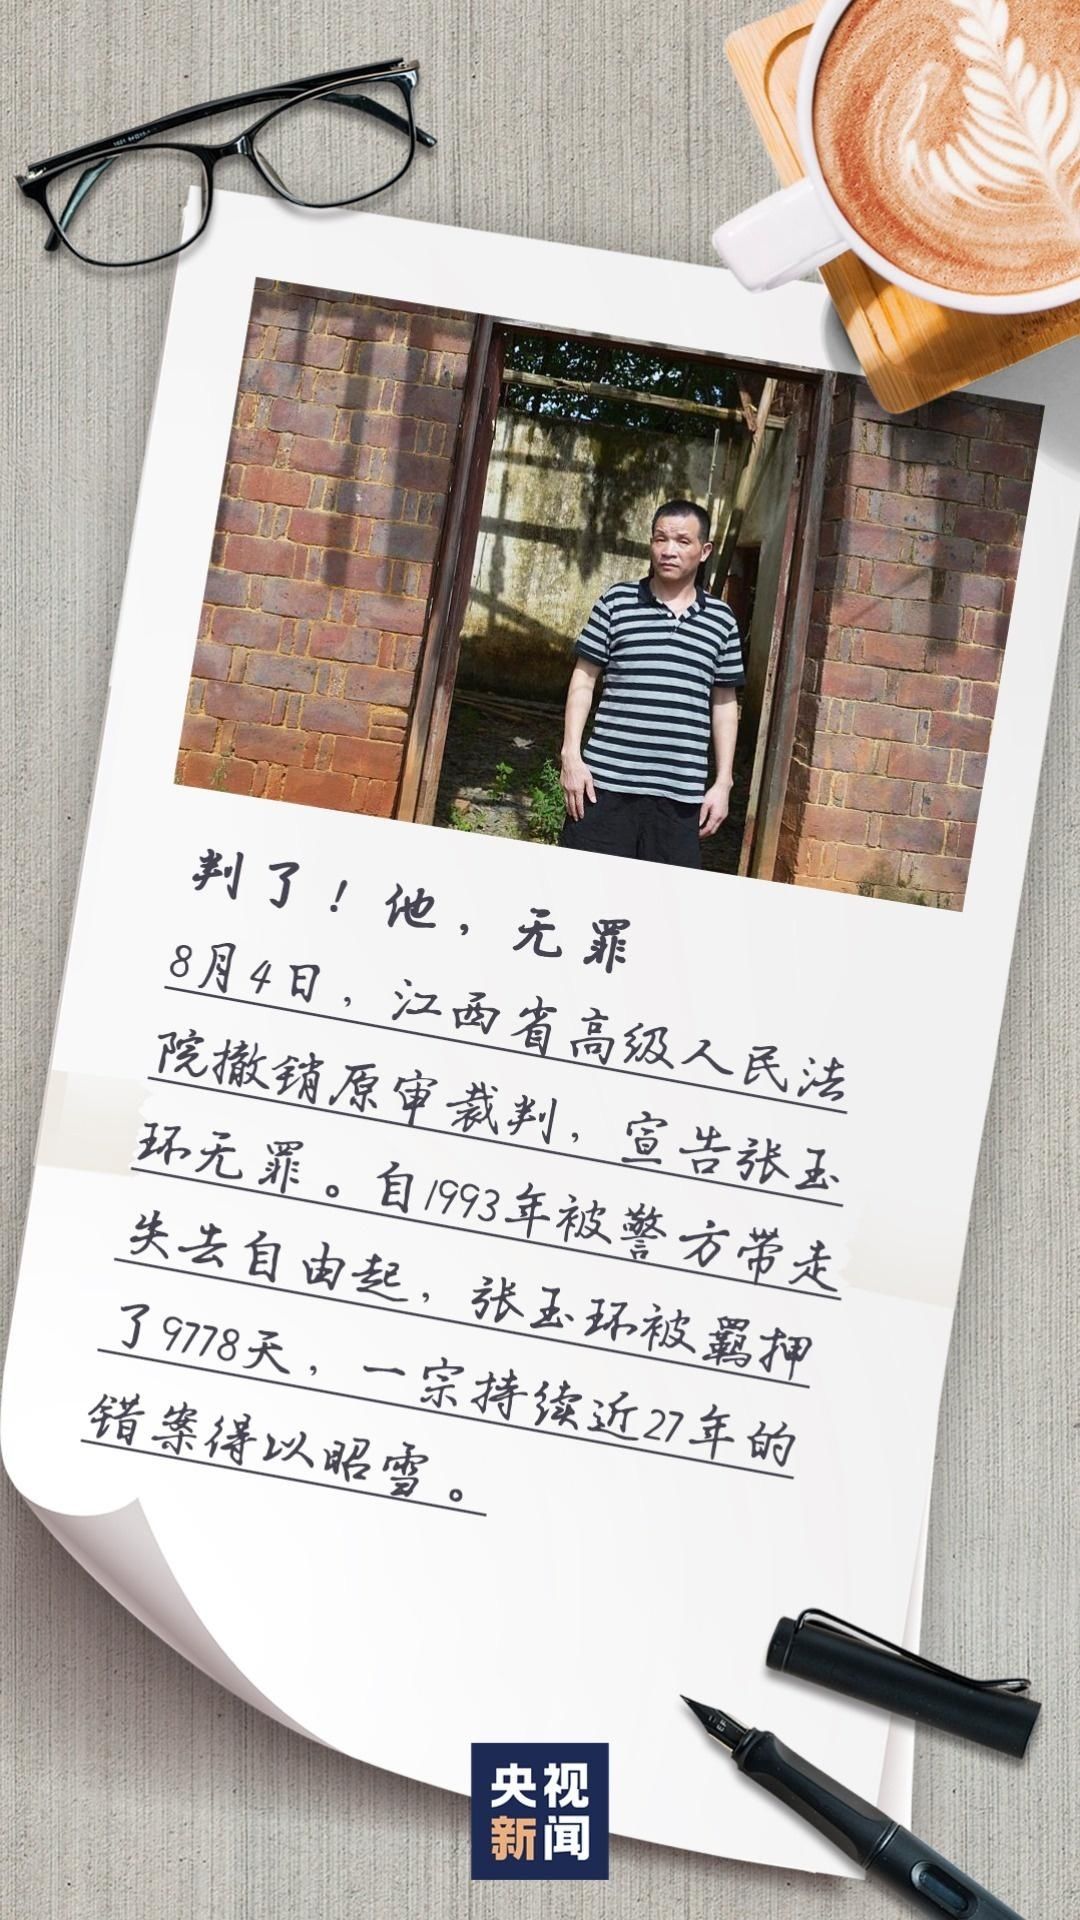 判了！他，无罪
8月4日，江西省高级人民法
院撤销原审裁判，宣告张玉
环无罪。自1993年被警方带走
失去自由起，张玉环被羁押
了9778天，一宗持续近27年的
错案得以昭雪。
央视
新闻